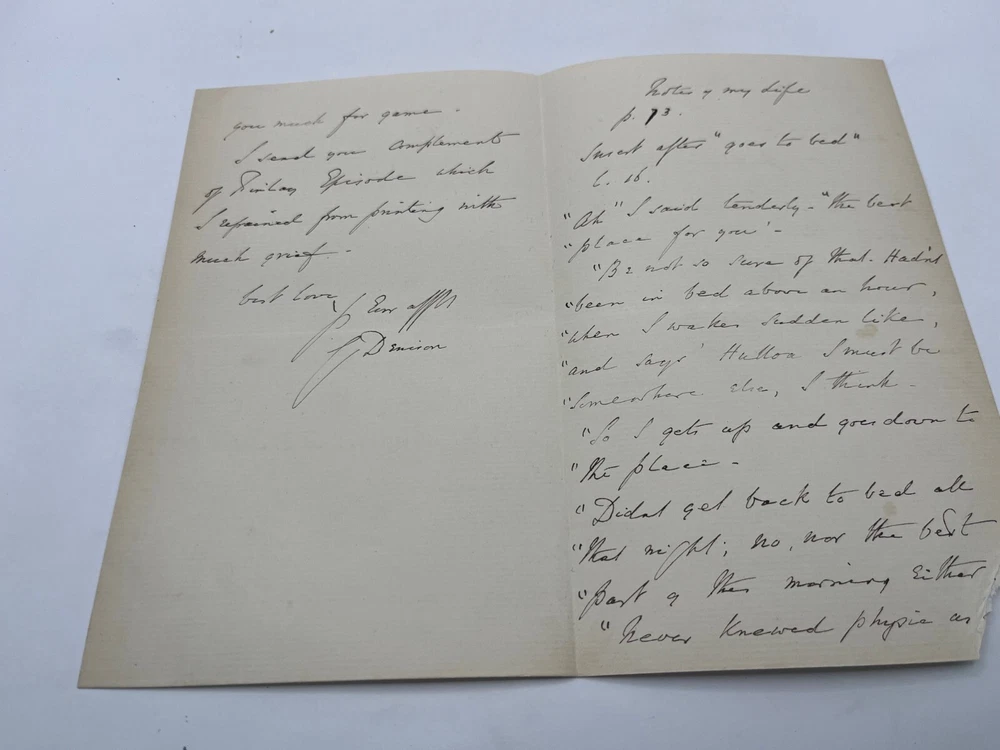 you much for game -
I send you complement
of Episode which
I refrained from printing with
much grief. -
best love,
Yr affte
G Denison
Notes of my Life
p. 73.
Insert after "goes to bed"
l. 16.
"Ah" I said tenderly - "the best
"place for you' -
"Be not so sure of that. Hadn't
"been in bed above an hour,
"when I wakes sudden like,
"and says' Hulloa I must be
"somewhere else, I think -
"So I gets up and goes down to
"the place -
"Didnt get back to bed all
"that night; no, nor the best
"part of the morning either
"Never knowed physic as